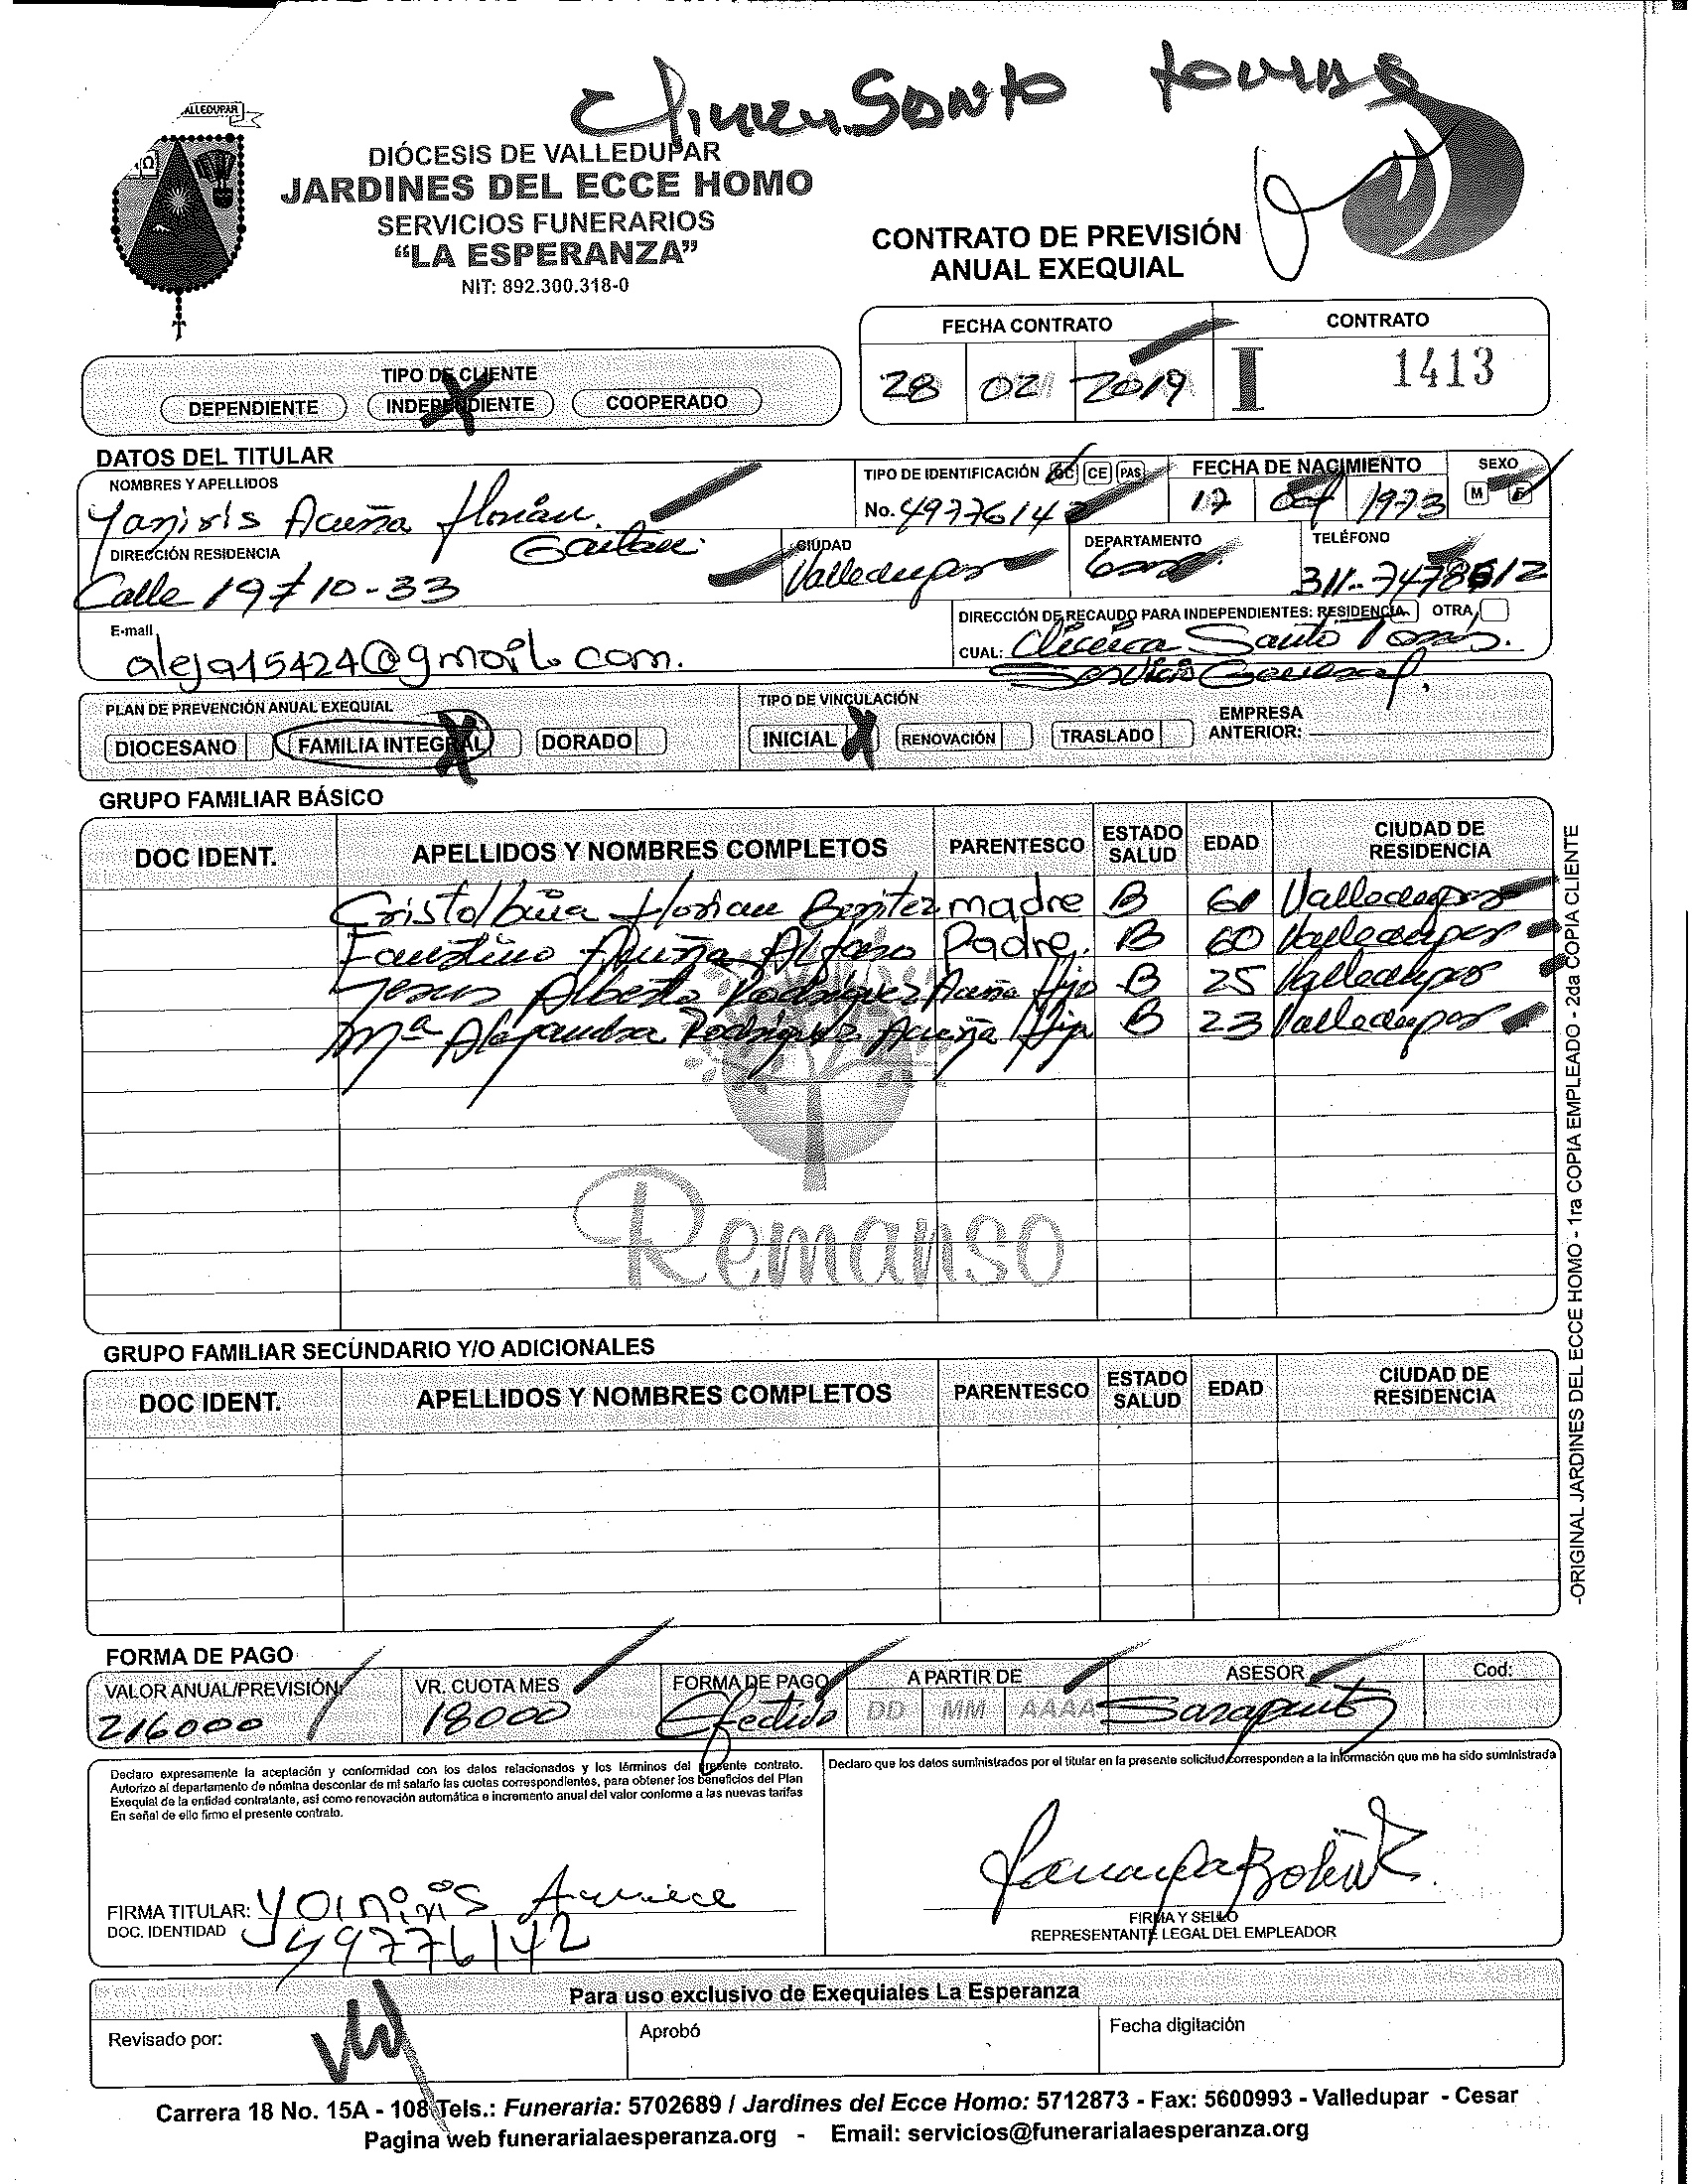 Clinica Santo Tomas
VALLEDUPAR
DIÓCESIS DE VALLEDUPAR
JARDINES DEL ECCE HOMO
SERVICIOS FUNERARIOS
“LA ESPERANZA”
NIT: 892.300.318-0
CONTRATO DE PREVISIÓN
ANUAL EXEQUIAL
FECHA CONTRATO CONTRATO
28 02 2019 I 1413
TIPO DE CLIENTE
DEPENDIENTE INDEPENDIENTE COOPERADO
DATOS DEL TITULAR
NOMBRES Y APELLIDOS
Yaniris Acuña Florián.
TIPO DE IDENTIFICACIÓN CC CE PAS
No. 49776142
FECHA DE NACIMIENTO
17 Oct 1973
SEXO
M F
DIRECCIÓN RESIDENCIA
Gaitan.
Calle 19 # 10-33
CIUDAD
Valledupar
DEPARTAMENTO
Cesar.
TELÉFONO
311-7478612
E-mail
aleja15424@gmail.com.
DIRECCIÓN DE RECAUDO PARA INDEPENDIENTES: RESIDENCIA OTRA
CUAL: Clinica Santo Tomás.
Servicio General.
PLAN DE PREVENCIÓN ANUAL EXEQUIAL
DIOCESANO FAMILIA INTEGRAL DORADO
TIPO DE VINCULACIÓN
INICIAL RENOVACIÓN TRASLADO
EMPRESA
ANTERIOR:
GRUPO FAMILIAR BÁSICO
DOC IDENT. APELLIDOS Y NOMBRES COMPLETOS PARENTESCO ESTADO SALUD EDAD CIUDAD DE RESIDENCIA
Cristolbina Florian Benitez madre B 61 Valledupar
Faustino Acuña Alfaro Padre. B 60 Valledupar
Jesus Alberto Rodriguez Acuña Hijo B 25 Valledupar
Mª Alejandra Rodriguez Acuña Hija B 23 Valledupar
Remanso
GRUPO FAMILIAR SECUNDARIO Y/O ADICIONALES
DOC IDENT. APELLIDOS Y NOMBRES COMPLETOS PARENTESCO ESTADO SALUD EDAD CIUDAD DE RESIDENCIA
-ORIGINAL JARDINES DEL ECCE HOMO - 1ra COPIA EMPLEADO - 2da COPIA CLIENTE
FORMA DE PAGO
VALOR ANUAL/PREVISIÓN VR. CUOTA MES FORMA DE PAGO A PARTIR DE ASESOR Cod:
216000 18000 Efectivo DD MM AAAA
Declaro expresamente la aceptación y conformidad con los datos relacionados y los términos del presente contrato.
Autorizo al departamento de nómina descontar de mi salario las cuotas correspondientes, para obtener los beneficios del Plan
Exequial de la entidad contratante, así como renovación automática e incremento anual del valor conforme a las nuevas tarifas
En señal de ello firmo el presente contrato.
FIRMA TITULAR: Yaniris Acuña
DOC. IDENTIDAD 49776142
Declaro que los datos suministrados por el titular en la presente solicitud corresponden a la información que me ha sido suministrada
FIRMA Y SELLO
REPRESENTANTE LEGAL DEL EMPLEADOR
Para uso exclusivo de Exequiales La Esperanza
Revisado por: Aprobó Fecha digitación
Carrera 18 No. 15A - 108 Tels.: Funeraria: 5702689 / Jardines del Ecce Homo: 5712873 - Fax: 5600993 - Valledupar - Cesar
Pagina web funerarialaesperanza.org - Email: servicios@funerarialaesperanza.org